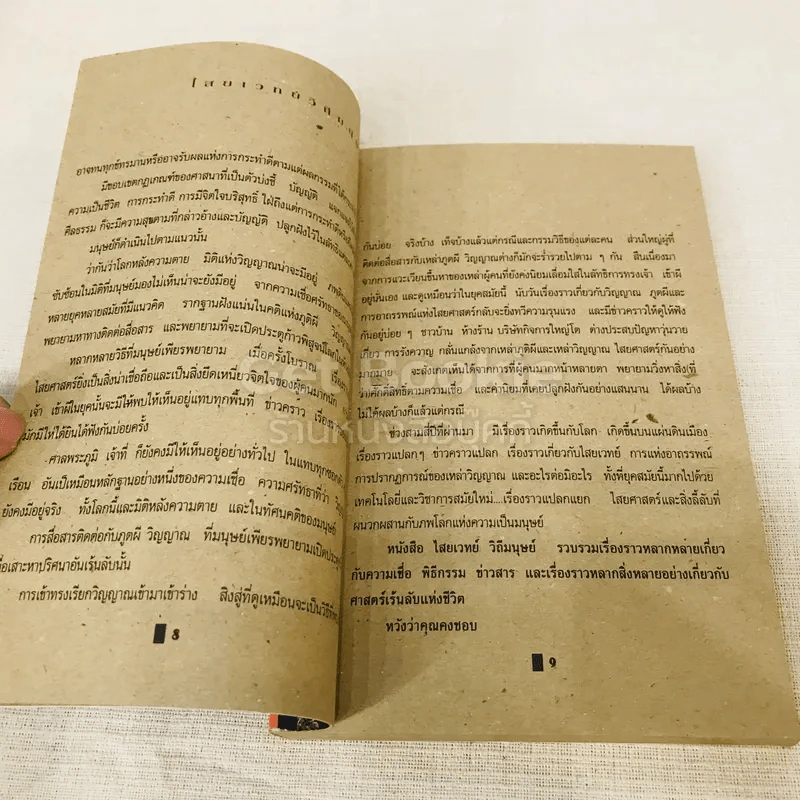 ไสยเวทย์วิถีม
อาจทนทุกข์ทรมานหรืออาจรับผลแห่งการกระทำดีตามแต่ผลกรรมที่ได้
มีขอบเขตกฎเกณฑ์ของศาสนาที่เป็นตัวบ่งชี้ บัญญัติ
ความเป็นชีวิต การกระทำดี การมีจิตใจบริสุทธิ์ ใฝ่ถึงแต่การกระทำ
ศีลธรรม ก็จะมีความสุขตามที่กล่าวอ้างและบัญญัติ ปลูกฝังไว้ใน
มนุษย์ก็ดำเนินไปตามแนวนั้น
ว่ากันว่าโลกหลังความตาย มิติแห่งวิญญาณน่าจะมีอยู่
ซับซ้อนในมิติที่มนุษย์มองไม่เห็นน่าจะยังมีอยู่ จากความเชื่อศรัทธาของ
หลายยุคหลายสมัยที่มีแนวคิด รากฐานฝังแน่นในคติแห่งภูติผี วิญญาณ
พยายามหาทางติดต่อสื่อสาร และพยายามที่จะเปิดประตูก้าวพิสูจน์โลก
หลากหลายวิธีที่มนุษย์เพียรพยายาม เมื่อครั้งโบราณ
ไสยศาสตร์ยิ่งเป็นสิ่งน่าเชื่อถือและเป็นสิ่งยึดเหนี่ยวจิตใจของผู้คนมากนัก
เจ้า เข้าผีในยุคนั้นจะมีให้พบให้เห็นอยู่แทบทุกพื้นที่ ข่าวคราว
มักมีให้ได้ยินได้ฟังกันบ่อยครั้ง
ศาลพระภูมิ เจ้าที่ ก็ยังคงมีให้เห็นอยู่อย่างทั่วไป ในแทบทุก
เรือน อันเป็นเหมือนหลักฐานอย่างหนึ่งของความเชื่อ ความศรัทธาที่ว่า
ยังคงมีอยู่จริง ทั้งโลกนี้และมิติหลังความตาย และในทัศนคติของมนุษย์
การสื่อสารติดต่อกับภูตผี วิญญาณ ที่มนุษย์เพียรพยายามเปิดประตู
เสาะหาปริศนาอันเร้นลับนั้น
การเข้าทรงเรียกวิญญาณเข้ามาเข้าร่าง สิงสู่ที่ดูเหมือนจะเป็นวิธี
8
กันบ่อย จริงบ้าง เท็จบ้างแล้วแต่กรณีและกรรมวิธีของแต่ละคน ส่วนใหญ่ผู้ที่
ติดต่อสื่อสารกับเหล่าภูตผี วิญญาณต่างก็มักจะร่ำรวยไปตาม ๆ กัน สืบเนื่องมา
จากการแวะเวียนขึ้นหาของเหล่าผู้คนที่ยังคงนิยมเลื่อมใสในลัทธิการทรงเจ้า เข้าผี
อยู่นั่นเอง และดูเหมือนว่าในยุคสมัยนี้ นับวันเรื่องราวเกี่ยวกับวิญญาณ ภูตผีและ
การอาถรรพณ์แห่งไสยศาสตร์กลับจะยิ่งทวีความรุนแรง และมีข่าวคราวให้ดูให้ฟัง
กันอยู่บ่อยๆ ชาวบ้าน ห้างร้าน บริษัทกิจการใหญ่โต ต่างประสบปัญหาวุ่นวาย
เกี่ยว การรังควาญ กลั่นแกล้งจากเหล่าภูติผีและเหล่าวิญญาณ ไสยศาสตร์กันอย่าง
มากมาย จะสังเกตเห็นได้จากการที่ผู้คนมากหน้าหลายตา พยายามวิ่งหาสิ่งที่
ว่าศักดิ์สิทธิ์ตามความเชื่อ และค่านิยมที่เคยปลูกฝังกันอย่างแสนนาน ได้ผลบ้าง
ไม่ได้ผลบ้างก็แล้วแต่กรณี
ช่วงสามสี่ปีที่ผ่านมา มีเรื่องราวเกิดขึ้นกับโลก เกิดขึ้นบนแผ่นดินเมือง
เรื่องราวแปลกๆ ข่าวคราวแปลก เรื่องราวเกี่ยวกับไสยเวทย์ การแห่งอาถรรพณ์
การปรากฏการณ์ของเหล่าวิญญาณ และอะไรต่อมิอะไร ทั้งที่ยุคสมัยนี้มากไปด้วย
เทคโนโลยี่และวิชาการสมัยใหม่....เรื่องราวแปลกแยก ไสยศาสตร์และสิ่งลี้ลับที่
ผนวกผสานกับภพโลกแห่งความเป็นมนุษย์
หนังสือ ไสยเวทย์ วิถีมนุษย์ รวบรวมเรื่องราวหลากหลายเกี่ยว
กับความเชื่อ พิธีกรรม ข่าวสาร และเรื่องราวหลากสิ่งหลายอย่างเกี่ยวกับ
ศาสตร์เร้นลับแห่งชีวิต
หวังว่าคุณคงชอบ
9